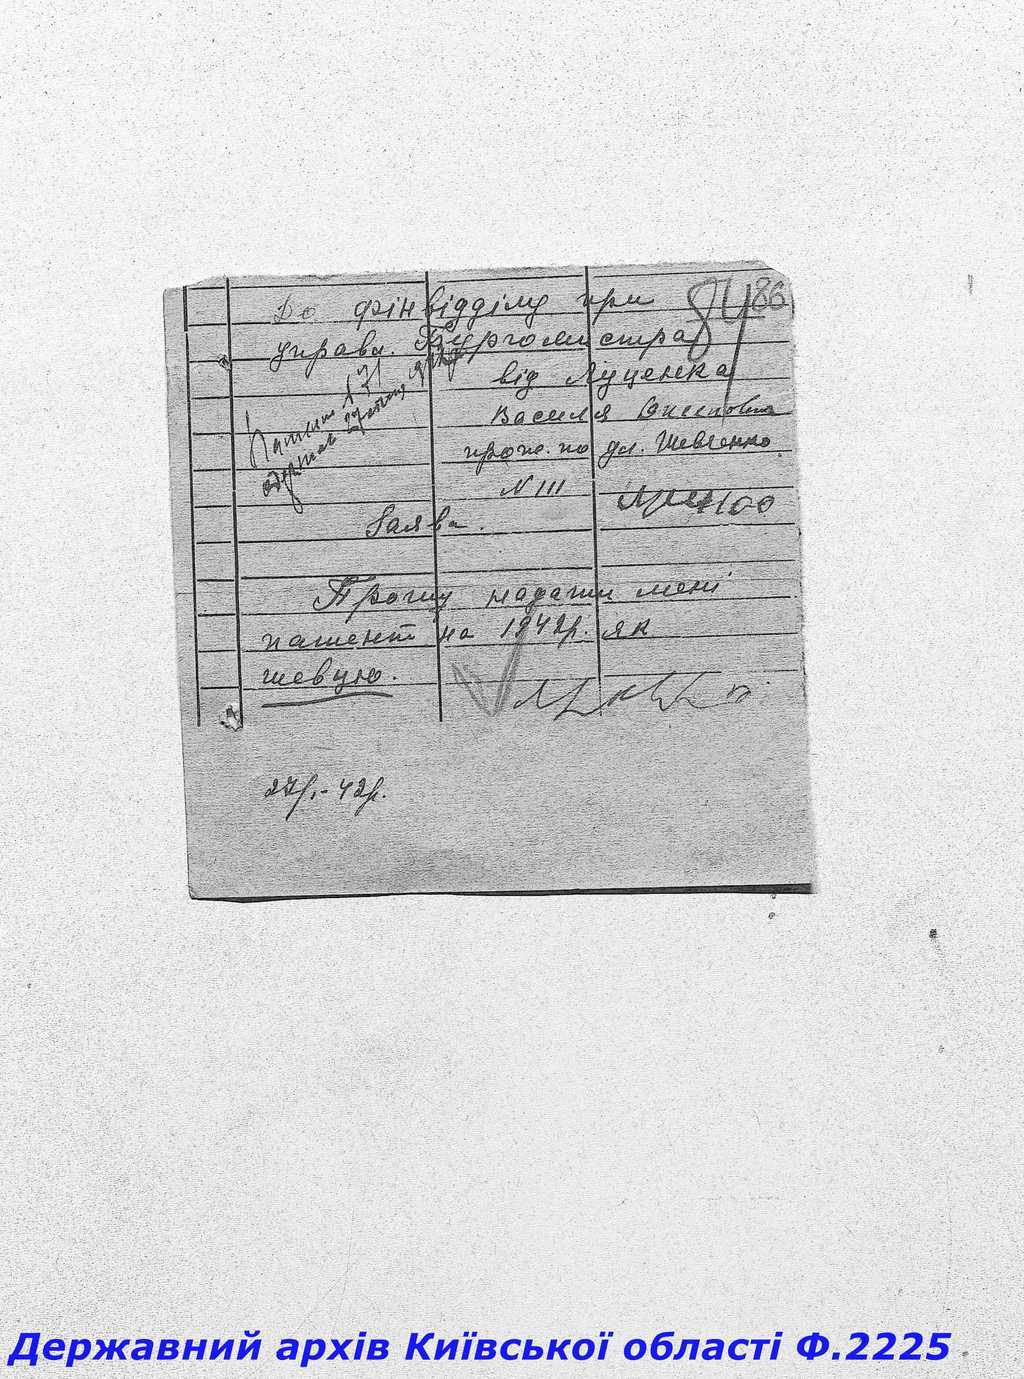 До фінвідділу при
86
управл. Бургомистра
від Луценка
Василя
прож. по ул. Шевченко
N 111
Патент № 71
одержав
Заява.
Прошу надати мені
патент на 1942р. як
шевцю.
42р.
Державний архів Київської області Ф.2225